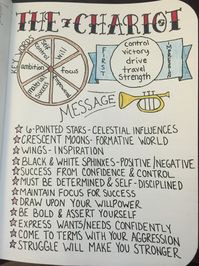 THE CHARIOT
KEY WORDS
control
will
ambition
focus
success
FIRST
control
victory
drive
travel
strength
MESSAGE
6-POINTED STARS-CELESTIAL INFLUENCES
CRESCENT MOONS-FORMATIVE WORLD
WINGS-INSPIRATION
BLACK & WHITE SPHINXES-POSITIVE/NEGATIVE
SUCCESS FROM CONFIDENCE & CONTROL
MUST BE DETERMINED & SELF-DISCIPLINED
MAINTAIN FOCUS FOR SUCCESS
DRAW UPON YOUR WILLPOWER
BE BOLD & ASSERT YOURSELF
EXPRESS WANTS/NEEDS CONFIDENTLY
COME TO TERMS WITH YOUR AGGRESSION
STRUGGLE WILL MAKE YOU STRONGER